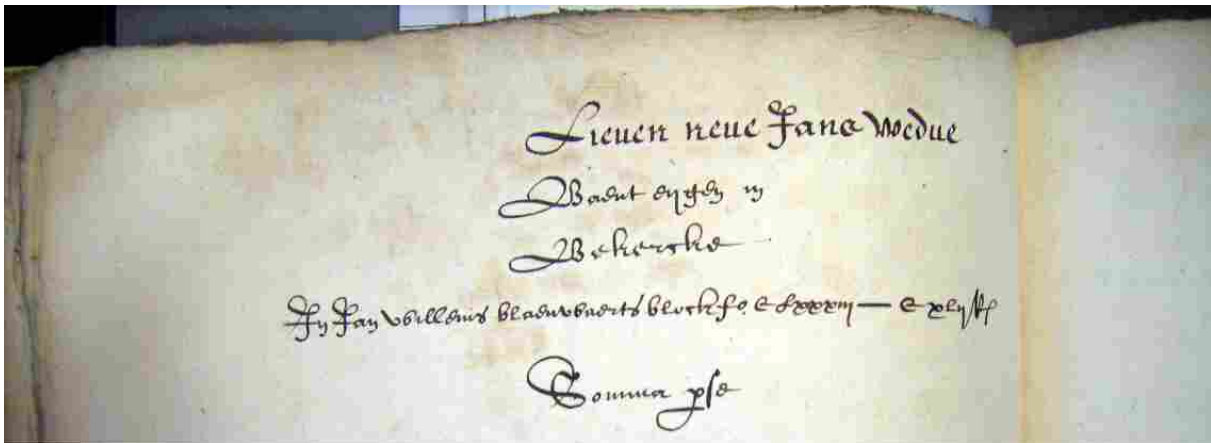 Lieven neve Jans wedue
Baent eygen in
Bekercke
In Jan Willems blaeuvaerts block fo. C lxxxiij — C xlij
Somma p se